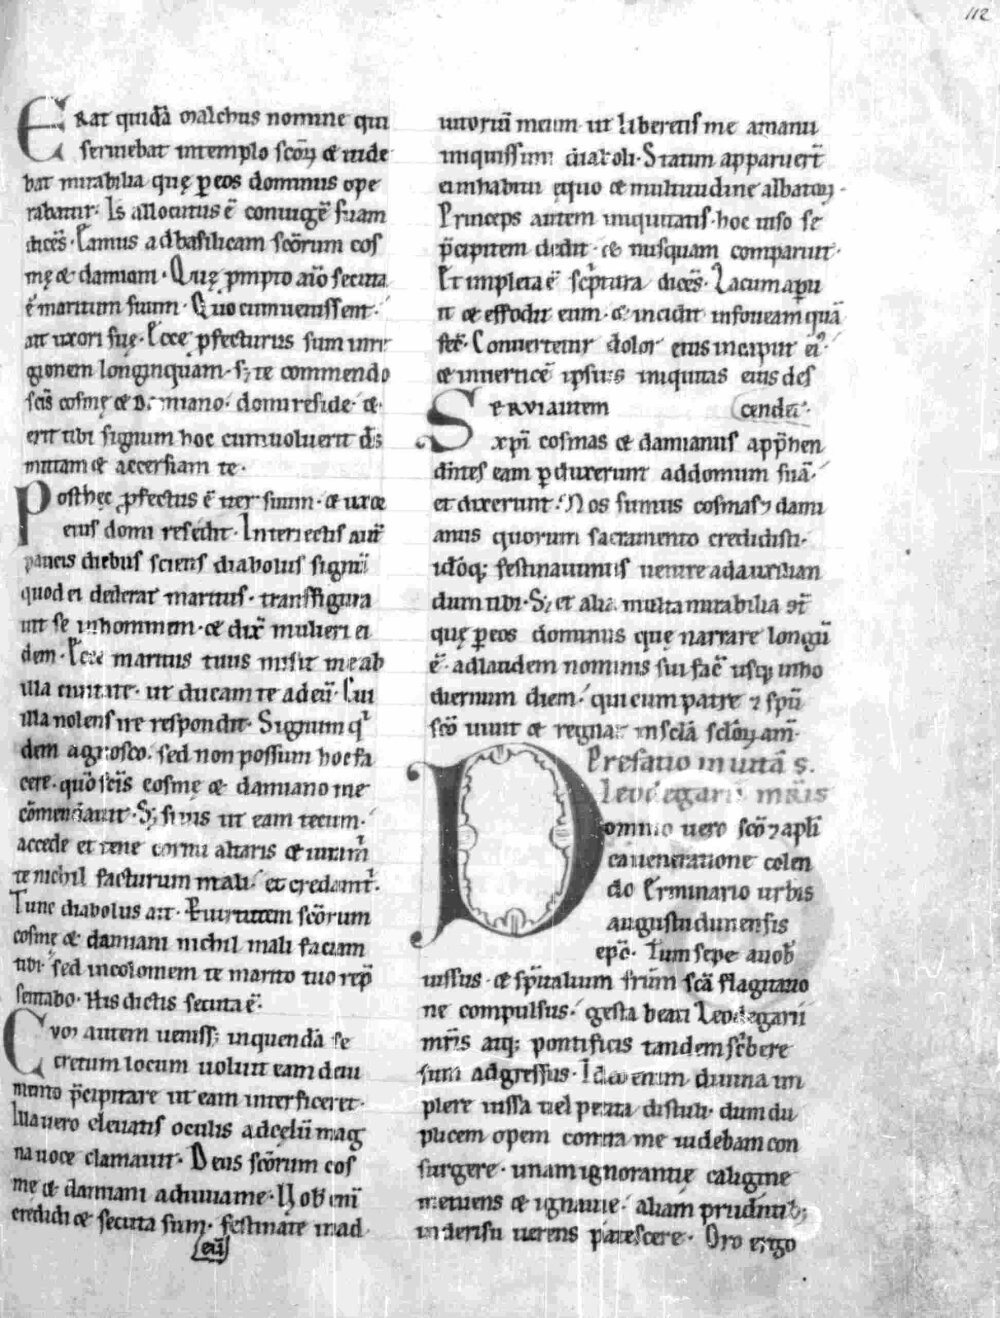 112
Erat quidā malchus nomine qui
seruiebat intemplo scōꝝ & uide
bat mirabilia quę ꝑeos dominus ope
rabatur. Is allocutus ē coniugē suam
dicēs. Eamus adbasilicam scōrum cos
mę & damiani. Quę ꝓmpto aīo secuta
ē maritum suum. Quo cumuenissent.
ait uxori suę. Ecce ꝓfecturus sum inre
gionem longinquam. sꝫ te commendo
scīs cosmę & damiano. domireside. &
erit tibi signum hoc cumuoluerit dīs
mittam & accersiam te.
Posthęc ꝓfectus ē uer suum. & uxor
eius domi resedit. Interiectis aut̄
paucis diebus sciens diabolus signū
quod ei dederat maritus. transfigura
uit se inhominem. & dix̄ mulieri ei
dem. Ecce maritus tuus misit me ab
illa ciuitate. ut ducam te adeū. Cui
illa nolens ire respondit. Signum qͥ
dem agnosco. sed non possum hocfa
cere. quō scīs cosmę & damiano me
cōmendauit. Sꝫ siuis ut eam tecum.
accede et tene cornu altaris & iura m̄
te nichil facturum mali. et credam t̄.
Tunc diabolus ait. Puirtutem scōrum
cosmę & damiani nichil mali faciam
tibi. sed incolomem te marito tuo rep̄
sentabo. His dictis secuta ē.
Cvꝫ autem ueniss; inquendā se
cretum locum uoluit eam deiu
mento p̄cipitare ut eam interficeret.
Illa uero eleuatis oculis adcęlū mag
na uoce clamauit. Deus scōrum cos
mę & damiani adiuuame. Uobis eni
credidi & secuta sum. festinate inad
eū
iutoriū meum ut liberetis me amanu
iniquissimi diaboli. Statim apparuer̄t
ambabus ęquo & multitudine albatoꝝ.
Princeps autem iniquitatis. hoc uiso se
p̄cipitem dedit. & nusquam comparuit.
Et impleta ē sc̄ptura dicēs. Lacum apu
it & effodit eum. & incidit infoueam quā
fec̄. Conuertetur dolor eius incaput eiꝰ.
& inuerticē ipsius iniquitas eius des
Serui autem cendet̄.
xp̄i cosmas & damianus app̄hen
dentes eam ꝑduxerunt addomum suā.
et dixerunt. Nos sumus cosmas ⁊ dami
anus quorum sacramento credidisti.
idōq; festinauimus uenire adauxilian
dum tibi. Sꝫ et alia multa mirabilia s̄t
quę ꝑeos dominus quę narrare longū
ē. adlaudem nominis sui fac̄ usq; inho
diernum diem. qui cum patre ⁊ spū
scō uiuit & regnat insclā sclōꝝ am̄.
Prefatio in uitā s.
leudegarii mr̄is
Domino uero scō ⁊ apl̄i
ca ueneratione colen
do Erminario urbis
augustudunensis
epō. Tum sepe auob̄
iussus. & sp̄italium frūm scā flagitatio
ne compulsus. gesta beati Leodegarii
mr̄is atq; pontificis tandem sc̄bere
sum adgressus. Ideo enim diuina im
plere iussa uel petita distuli. dum du
plicem opem contra me uidebam con
surgere. unam ignorantię caligine
metuens & ignauię. aliam prudentib;
inderisu uerens patescere. Oro ergo